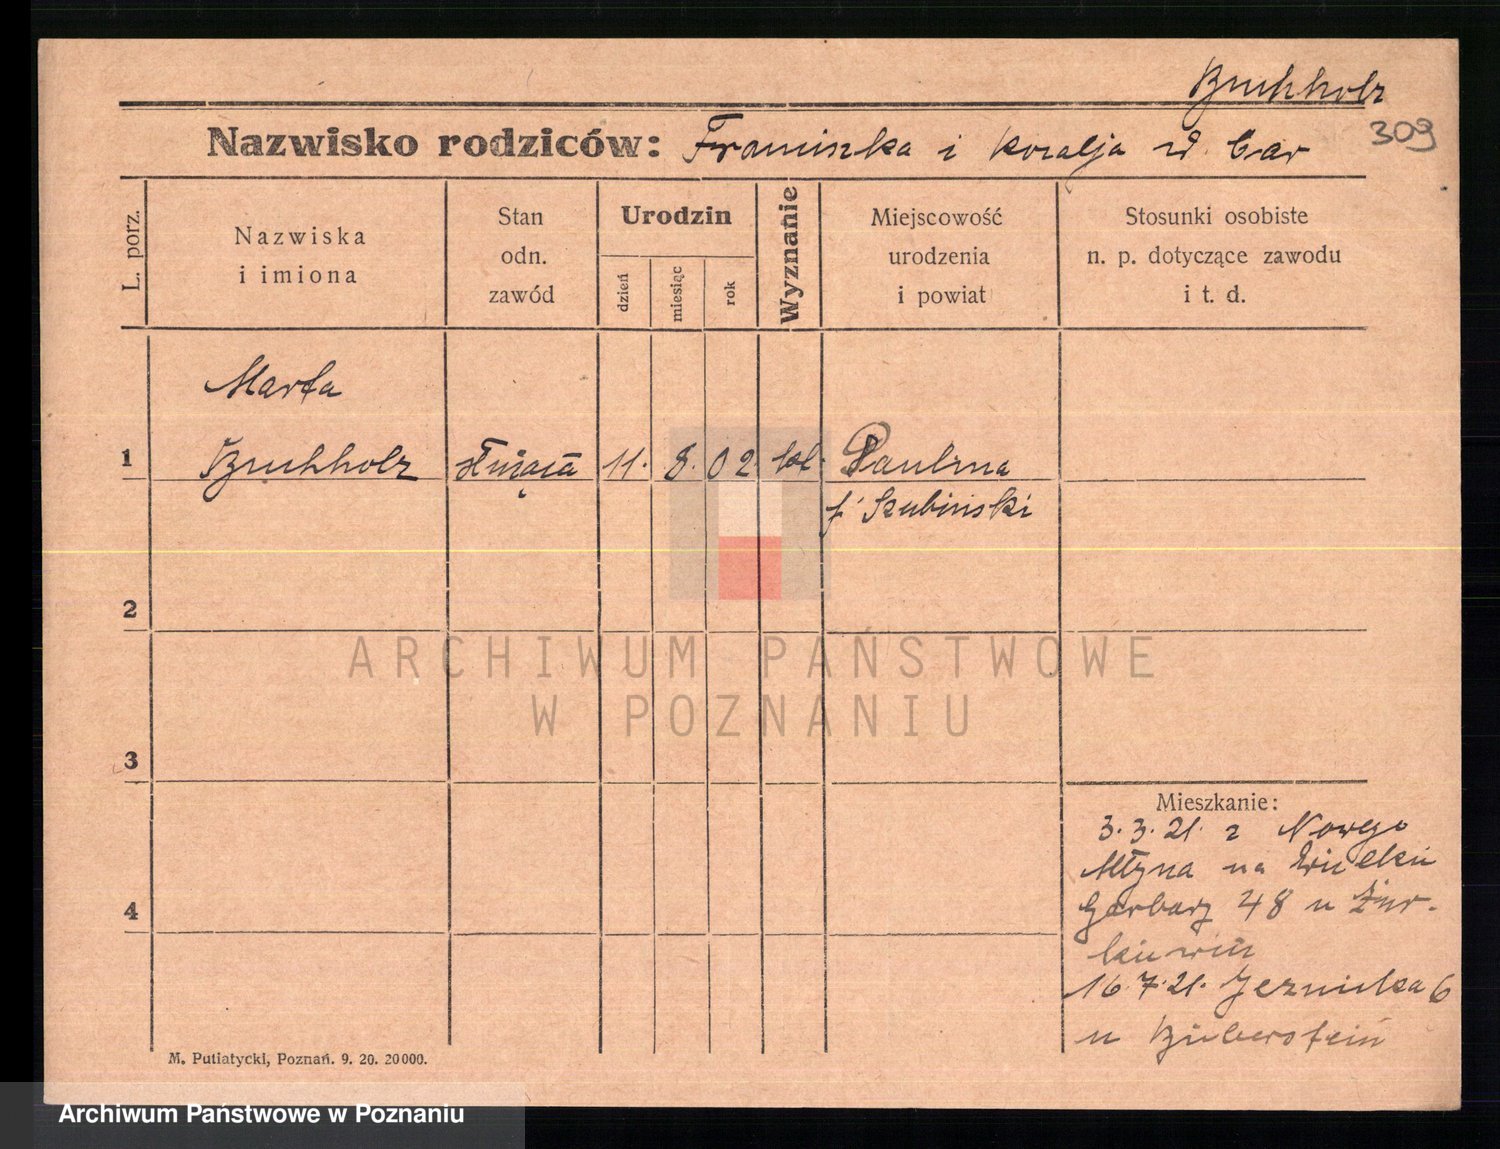 Buchholz
309
Nazwisko rodziców: Franciszka i Rozalja z d.
L. porz.
Nazwiska i imiona
Stan odn. zawód
Urodzin
dzień
miesiąc
rok
Wyznanie
Miejscowość urodzenia i powiat
Stosunki osobiste n. p. dotyczące zawodu i t. d.
Marta
1 Buchholz służąca 11. 8. 02. kat. Paulina
Szubiński
2
3
4
Mieszkanie:
3. 3. 21. z Nowego
Młyna na Wielkie
Garbary 48 u Żur-
kiewicz
16. 7. 21. Jezuicka 6
u Biberstein
M. Putiatycki, Poznań. 9. 20. 20 000.
ARCHIWUM PAŃSTWOWE
W POZNANIU
Archiwum Państwowe w Poznaniu